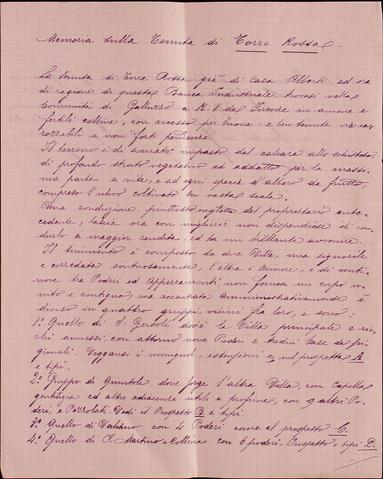 Memoria sulla Tenuta di Torre Rossa.
La tenuta di Torre Rossa già di Casa Alberti ed ora
di ragione di questa Banca Industriale trovasi nella
Comunità di Galuzzo a K. 8 da Firenze in amene e
fertili colline, con accesso per buone e ben tenute vie car
rozzabili a non forti pendenze
Il terreno è di svariato impasto dal calcare allo schistoso
di profondo strato vegetativo ed addatto per la massi
ma parte a vite, e ad ogni specie d'albero da frutto,
compreso l'ulivo coltivato in vasta scala.
Una conduzione piuttosto negletta del proprietario ante
cedente, lascia ora con migliorie non dispendiose di con
durlo a maggior rendita, ed ha un brillante avvenire.
Il tenimento è composto da due Ville, una signorile
e corredata sontuosamente, l'altra è minore; e di venti
nove tra Poderi ed Appezzamenti non forma un corpo in
unito e contiguo, ma accentrata amministrativamente è
diviso in quattro gruppi, vicini fra loro, e sono:
1.° Quello di S. dov'è la Villa principale e
chi annessi con attorno nove Poderi e tredici Case dei pi
gionali. Veggansi i nomi, estensioni ecc. nel prospetto A
e tipi.
2.° Gruppo di dove sorge l'altra Villa, con Capella
gentilizia ed altre adiacenze utili e proficue, con 9 altri Po
deri, e Pozzolati. Vedi il Prospetto B e tipi
3.° Quello di con 4 Poderi come al prospetto C.
4.° Quello di S. Martino e Collina con 6 poderi - Prospetto e tipi D.